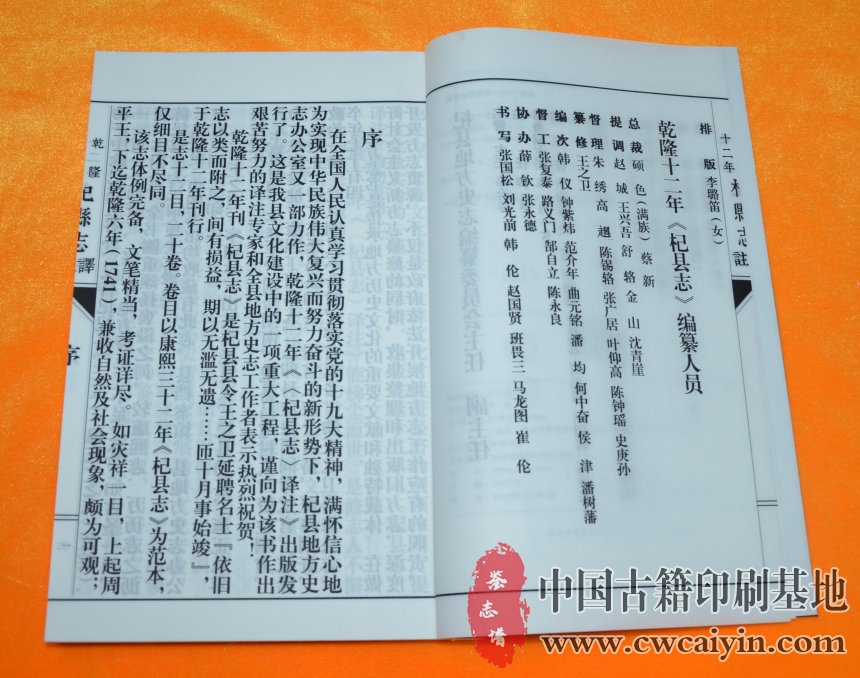 十二年 杞縣志註
排 版 李璐笛(女)
乾隆十二年《杞县志》编纂人员
总 裁 硕 色(满族) 蔡 新
提 调 赵 城 王兴吾 舒 辂 金 山 沈青崖
督 理 朱 绣 高 䢺 陈锡辂 张广居 叶仰高 陈钟瑶 史庚孙
纂 修 王之卫
编 次 韩 仪 钟紫炜 范介年 曲元铭 潘 均 何中奋 侯 津 潘树藩
督 工 张复泰 路义门 郜自立 陈永良
协 办 薛 钦 张永德
书 写 张国松 刘光前 韩 伦 赵国贤 班畏三 马龙图 崔 伦
序
在全国人民认真学习贯彻落实党的十九大精神,满怀信心地
为实现中华民族伟大复兴而努力奋斗的新形势下,杞县地方史
志办公室又一部力作,乾隆十二年《〈杞县志〉译注》出版发
行了。这是我县文化建设中的一项重大工程,谨向为该书作出
艰苦努力的译注专家和全县地方史志工作者表示热烈祝贺!
乾隆十二年刊《杞县志》是杞县县令王之卫延聘名士『依旧
志以类而附之,间有损益,期以无滥无遗……匝十月事始竣』,
于乾隆十二年刊行。
是志十二目,二十卷。卷目以康熙三十二年《杞县志》为范本,
仅细目不尽同。
该志体例完备,文笔精当,考证详尽。如灾祥一目,上起周
平王,下迄乾隆六年(1741),兼收自然及社会现象,颇为可观;
乾 隆 杞縣志譯
序
一
鉴志谱
中国古籍印刷基地
www.cwcaiyin.com